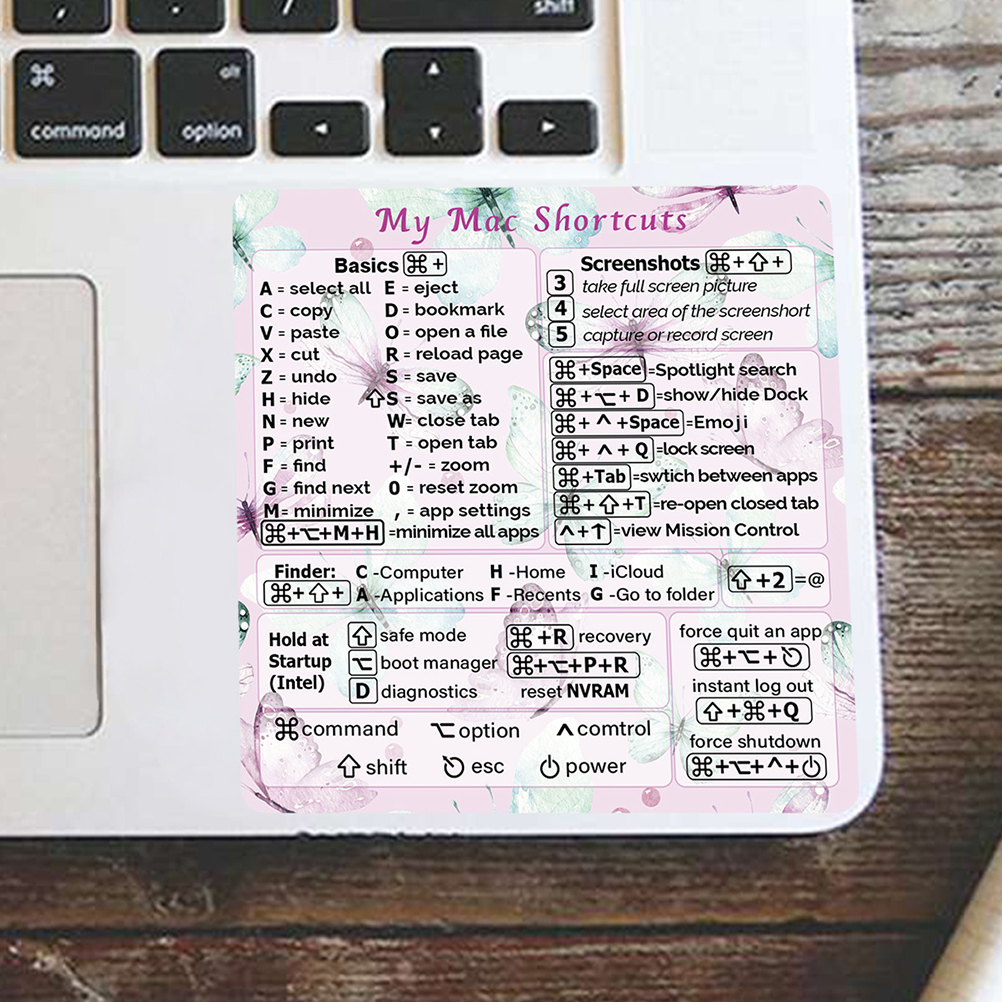 , . / shift
⌘ alt
command option ◄ ▲ ▼ ►
My Mac Shortcuts
Basics ⌘ +
A = select all E = eject
C = copy D = bookmark
V = paste O = open a file
X = cut R = reload page
Z = undo S = save
H = hide ⇧S = save as
N = new W= close tab
P = print T = open tab
F = find +/- = zoom
G = find next 0 = reset zoom
M= minimize , = app settings
⌘+⌥+M+H =minimize all apps
Screenshots ⌘+⇧+
3 take full screen picture
4 select area of the screenshort
5 capture or record screen
⌘+Space=Spotlight search
⌘+⌥+D=show/hide Dock
⌘+^+Space=Emoji
⌘+^+Q=lock screen
⌘+Tab=swtich between apps
⌘+⇧+T=re-open closed tab
^+↑=view Mission Control
Finder: C -Computer H -Home I -iCloud
⌘+⇧+ A -Applications F -Recents G -Go to folder
⇧+2=@
Hold at
Startup
(Intel)
⇧ safe mode
⌥ boot manager
D diagnostics
⌘+R recovery
⌘+⌥+P+R
reset NVRAM
force quit an app
⌘+⌥+⎋
instant log out
⇧+⌘+Q
force shutdown
⌘+⌥+^+⏻
⌘command ⌥option ^comtrol
⇧ shift ⎋ esc ⏻ power